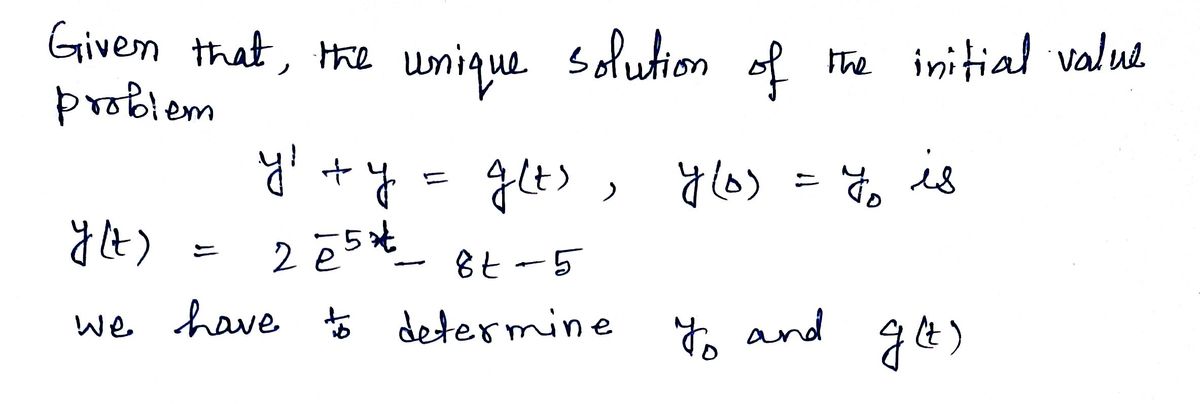 Given that, the unique solution of the initial value
problem
y' + y = g(t) , y(0) = y₀ is
y(t) = 2 e⁻⁵ᵗ - 8t - 5
we have to determine y₀ and g(t)